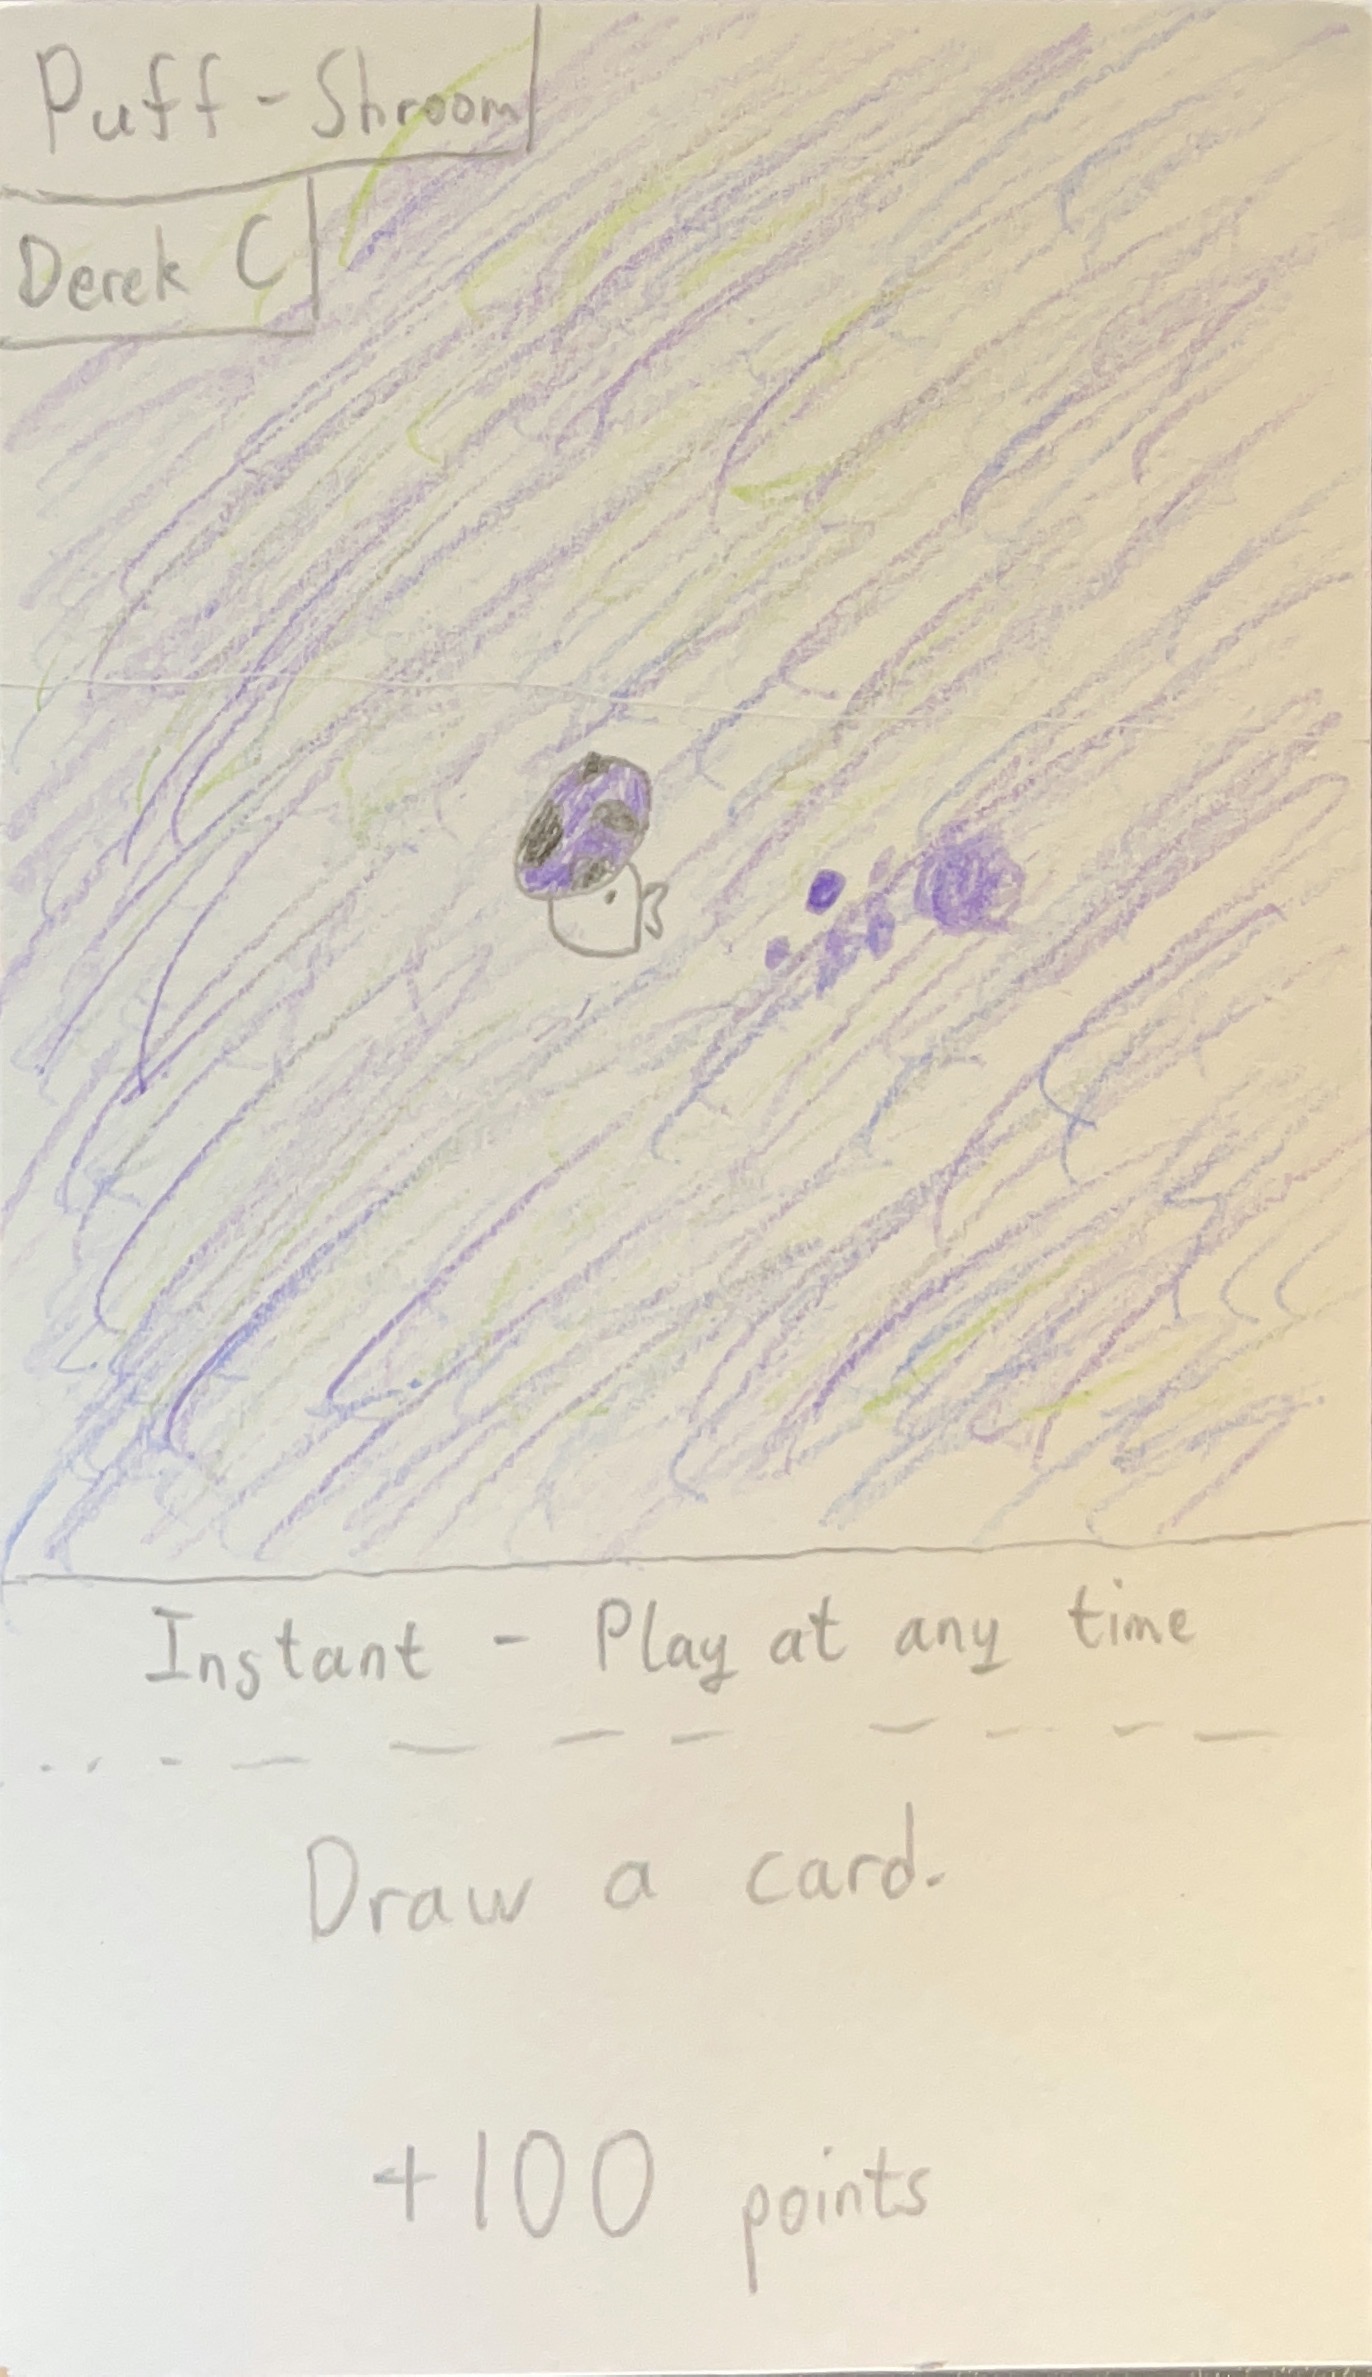 Puff - Shroom
Derek C
Instant - Play at any time
Draw a card.
+100 points